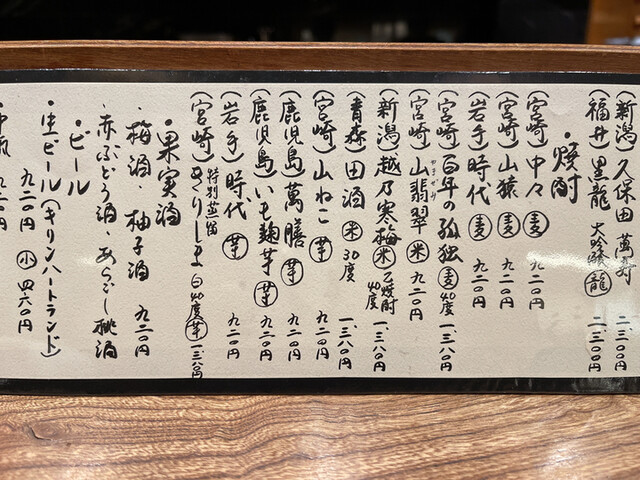 (新潟)久保田 萬寿 二、三〇〇円
(福井)黒龍 大吟醸 龍 二、三〇〇円
・焼酎
(宮崎)中々 麦 九二〇円
(宮崎)山猿 麦 九二〇円
(岩手)時代 麦 九二〇円
(宮崎)百年の孤独 麦 40度 一、三八〇円
(宮崎)山翡翠 米 九二〇円
(新潟)越乃寒梅 米 乙焼酎 40度 一、三八〇円
(青森)田酒 米 30度 一、三八〇円
(宮崎)山ねこ 芋 九二〇円
(鹿児島)萬膳 芋 九二〇円
(鹿児島)いも麹芋 芋 九二〇円
(岩手)時代 芋 九二〇円
(宮崎)きりしま 特別蒸留 白 40度 芋
・果実酒
・梅酒・柚子酒 九二〇円
・赤ぶどう酒・あらごし桃酒
・ビール
・生ビール(キリンハートランド)
九二〇円 小 四六〇円